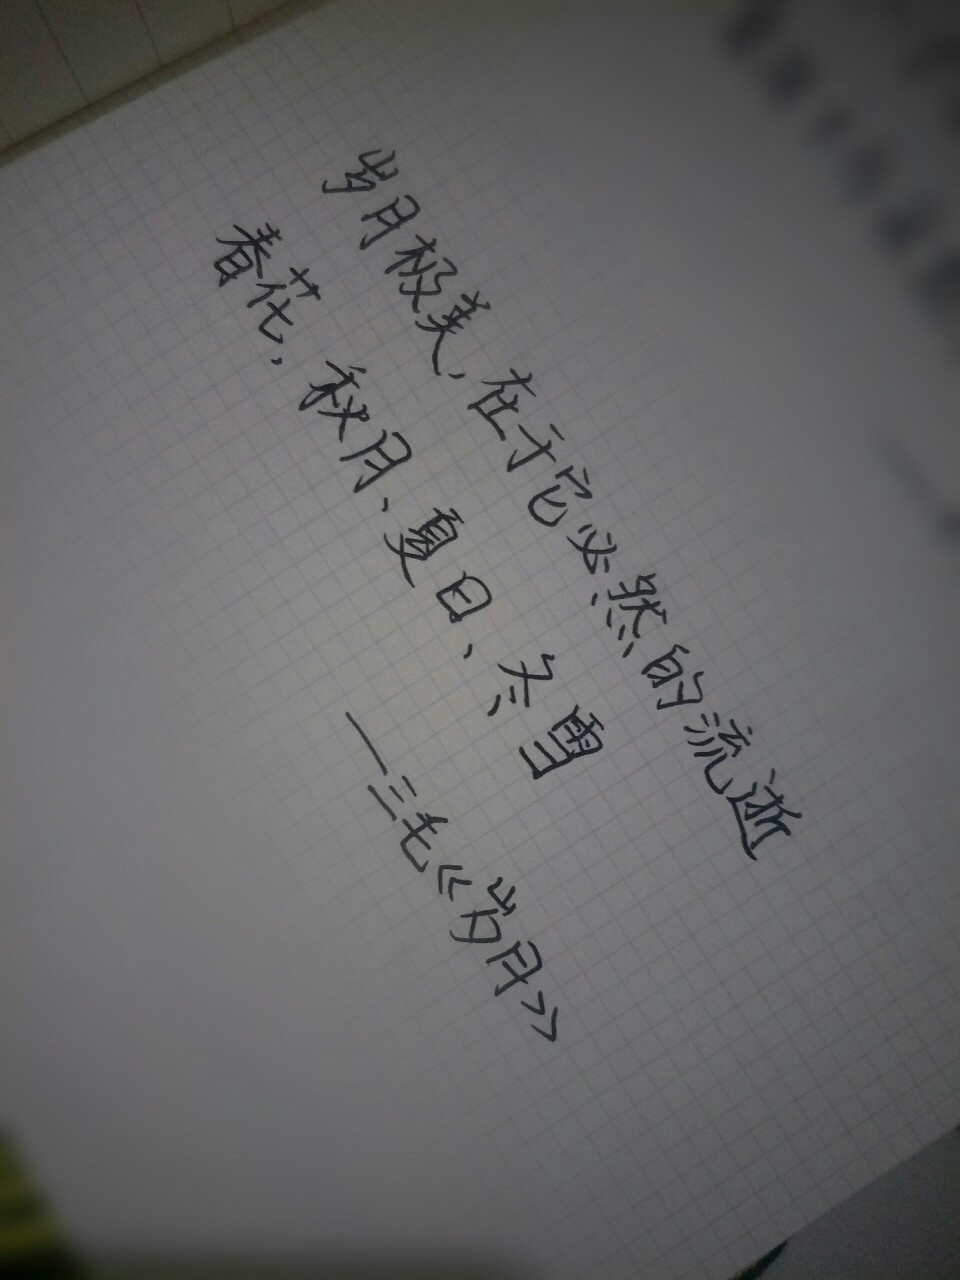 岁月极美，在于它必然的流逝
春花，秋月、夏日、冬雪
——三毛《岁月》